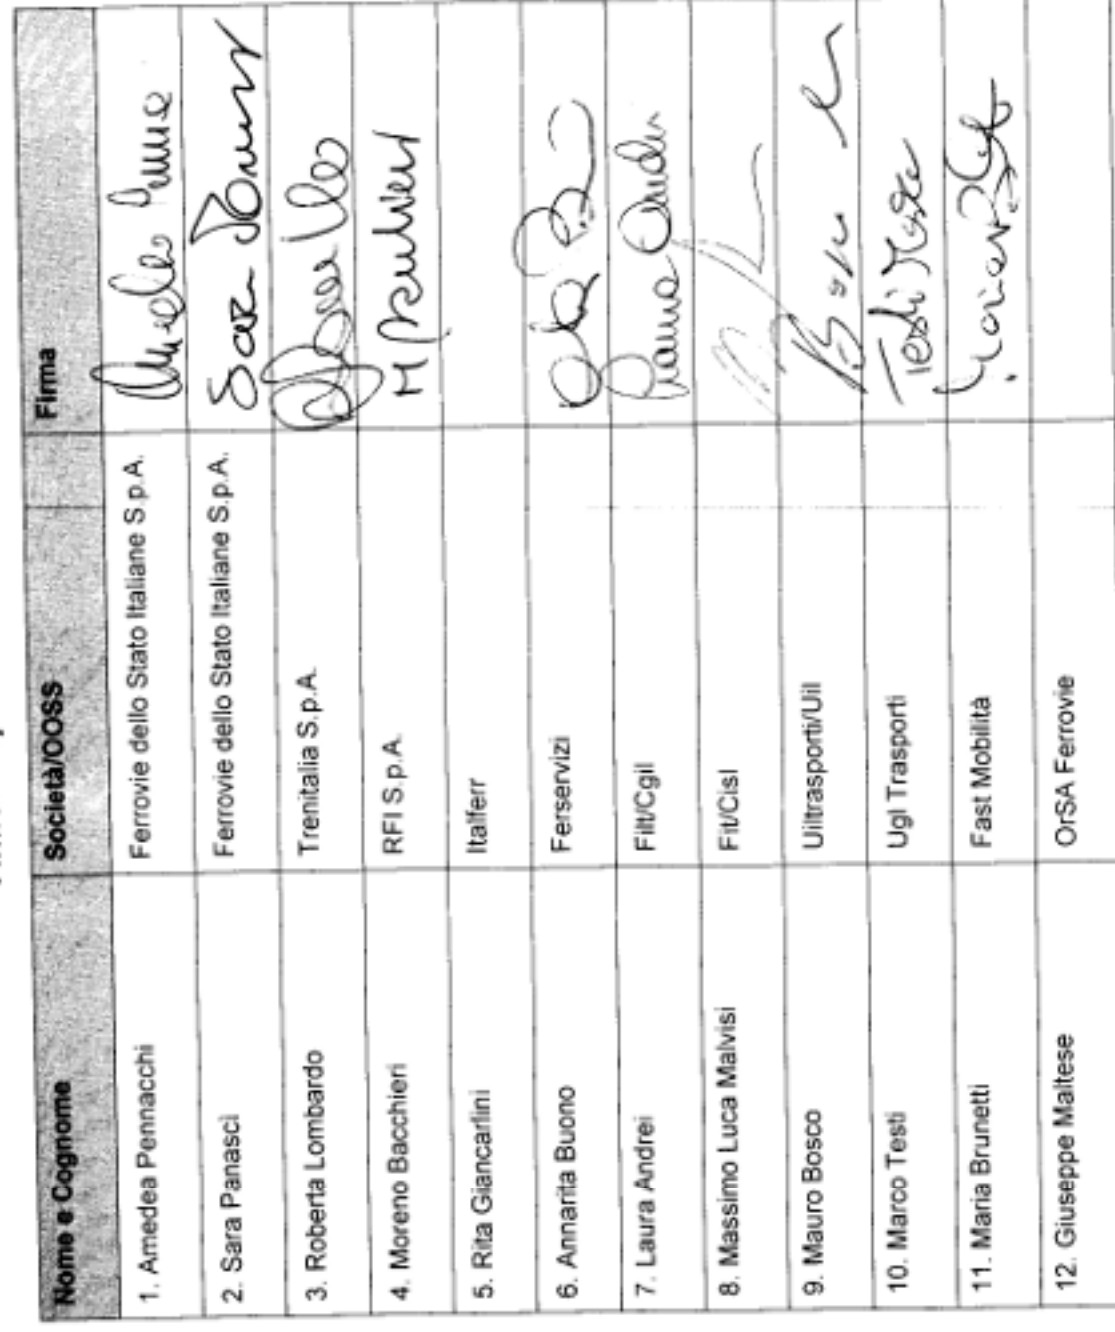 Nome e Cognome Società/OOSS Firma
1. Amedea Pennacchi Ferrovie dello Stato Italiane S.p.A.
2. Sara Panascì Ferrovie dello Stato Italiane S.p.A. Sara
3. Roberta Lombardo Trenitalia S.p.A.
4. Moreno Bacchieri RFI S.p.A.
5. Rita Giancarlini Italferr
6. Annarita Buono Ferservizi
7. Laura Andrei Filt/Cgil Laura Andrei
8. Massimo Luca Malvisi Fit/Cisl
9. Mauro Bosco Uiltrasporti/Uil
10. Marco Testi Ugl Trasporti Testi Marco
11. Maria Brunetti Fast Mobilità
12. Giuseppe Maltese OrSA Ferrovie